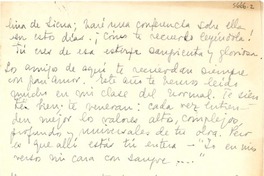 lina de Siena; haré una conferencia sobre ella
en estos días. ¡Cómo te recuerdo leyéndola!
Tú eres de esa estirpe sangrienta y gloriosa.
Los amigos de aquí te recuerdan siempre
con gran amor. Este año te hemos leído
mucho en mi clase del Normal. Te sien
ten hoy; te veneran: cada vez entien-
den mejor los valores altos, complejos,
profundos y universales de tu obra. Pero
es que allí estás tú entera — "Yo en mi
verso mi cara con sangre...."